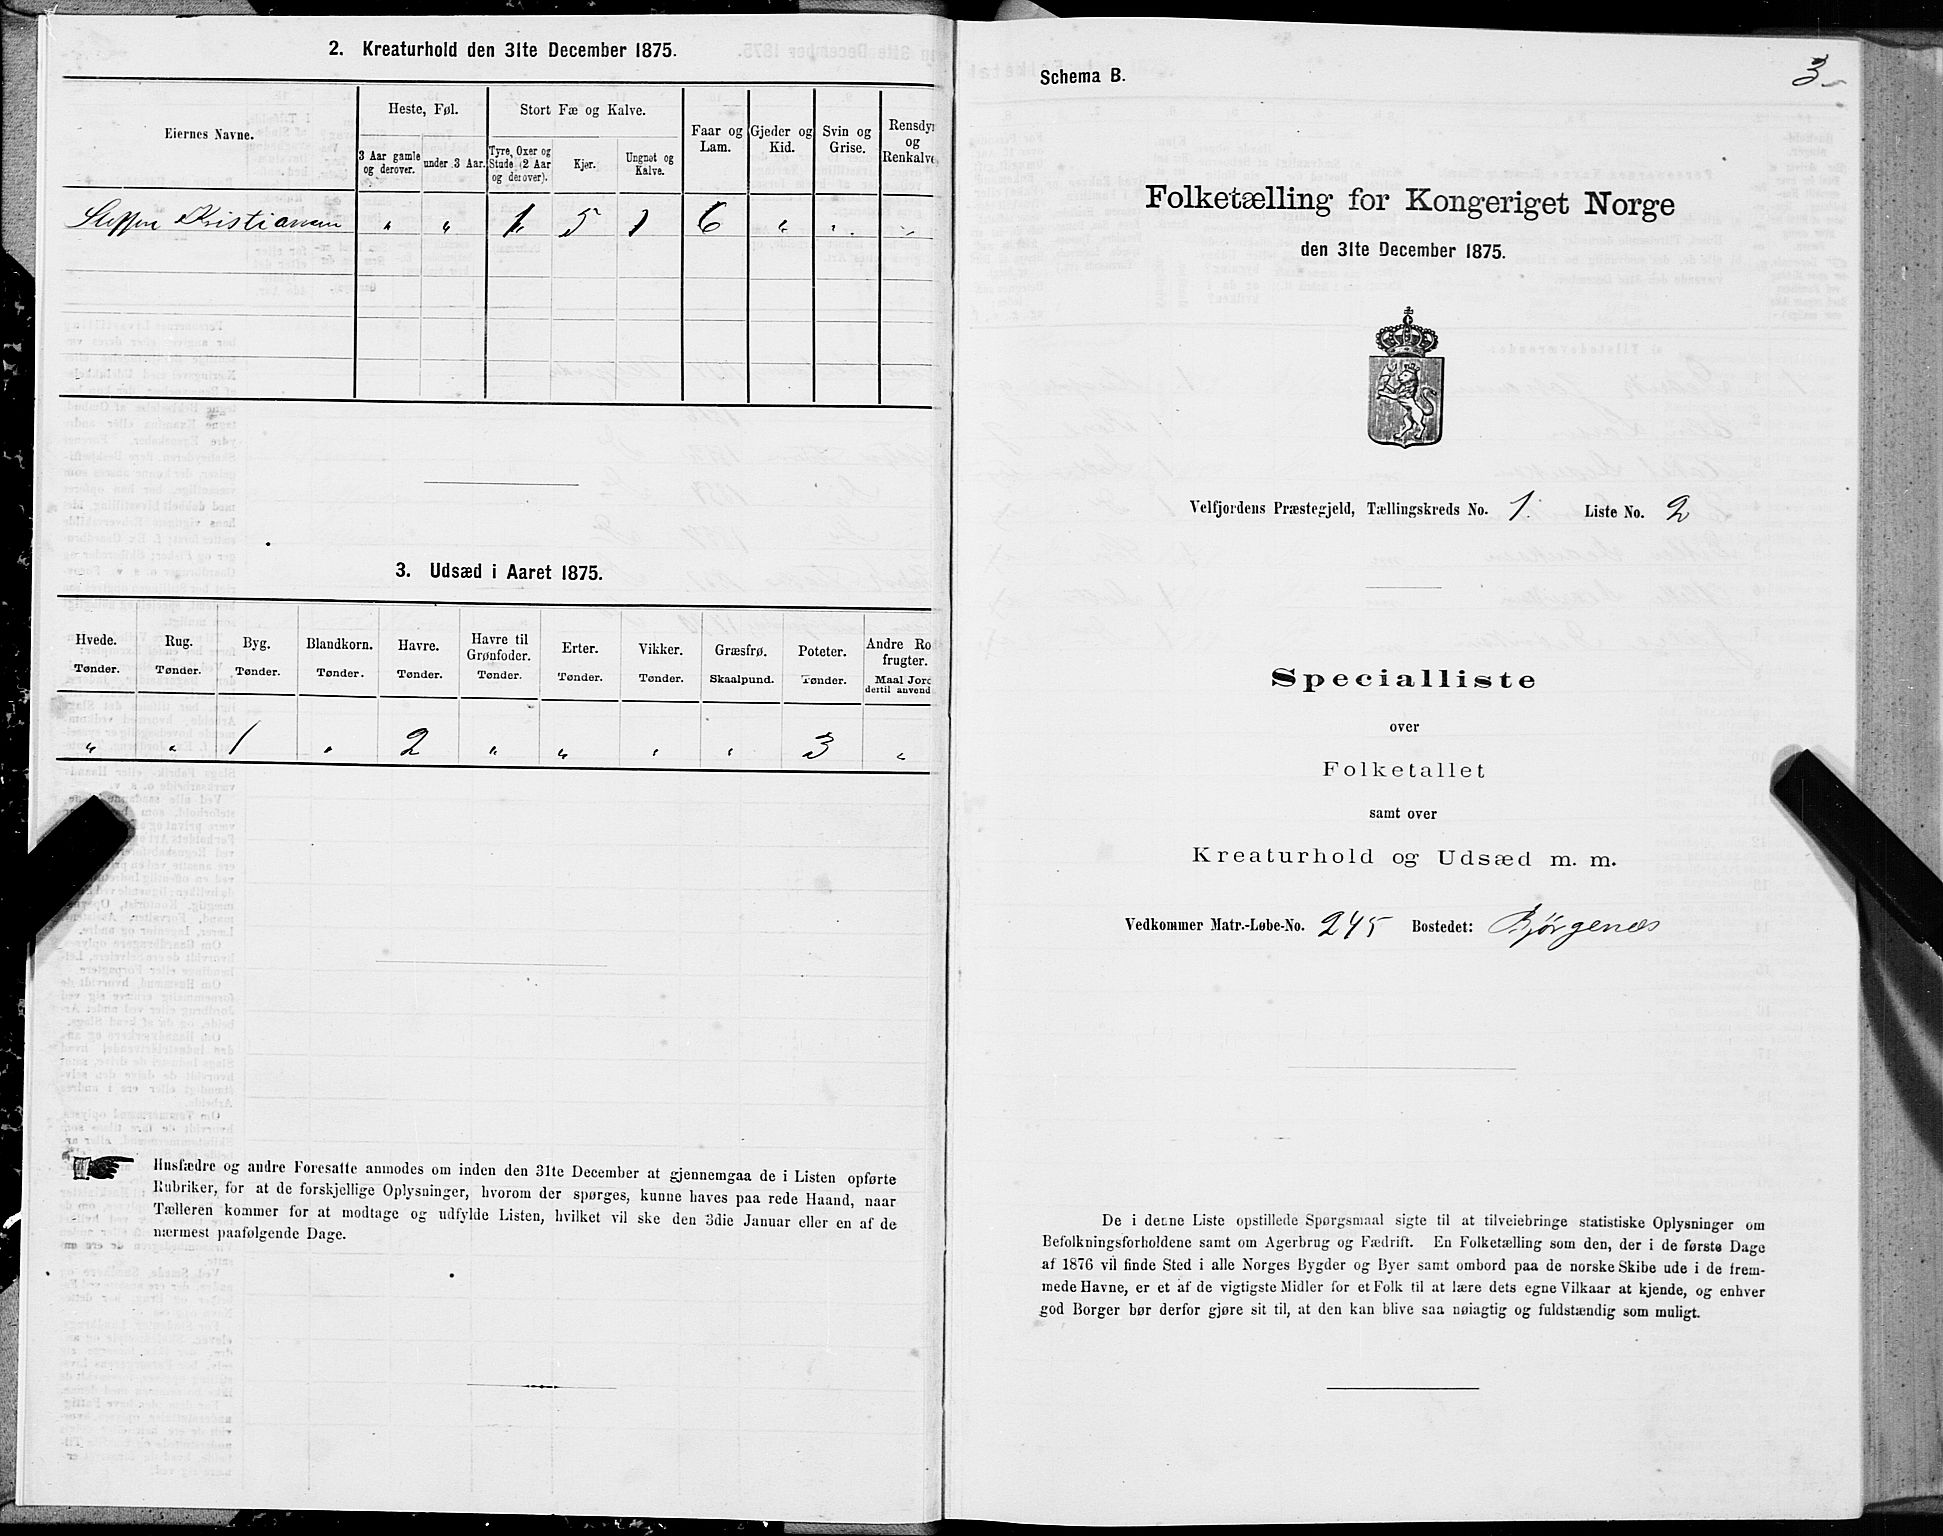 2. Kreaturhold den 31te December 1875.
Eiernes Navne.
Heste, Føl.
Stort Fæ og Kalve.
3 Aar gamle og derover.
under 3 Aar.
Tyre, Oxer og Stude (2 Aar og derover).
Kjør.
Ungnøt og Kalve.
Faar og Lam.
Gjeder og Kid.
Svin og Grise.
Rensdyr og Renkalve
Steffen Kristiansen " " 1 5 1 6 " " "
3. Udsæd i Aaret 1875.
Hvede. Tønder.
Rug. Tønder.
Byg. Tønder.
Blandkorn. Tønder.
Havre. Tønder.
Havre til Grønfoder. Tønder.
Erter. Tønder.
Vikker. Tønder.
Græsfrø. Skaalpund.
Poteter. Tønder.
Andre Ro frugter. Maal Jord dertil anvend
" " 1 " 2 " " " " 3 "
Husfædre og andre Foresatte anmodes om inden den 31te December at gjennemgaa de i Listen opførte
Rubriker, for at de forskjellige Oplysninger, hvorom der spørges, kunne haves paa rede Haand, naar
Tælleren kommer for at modtage og udfylde Listen, hvilket vil ske den 3die Januar eller en af de
nærmest paafølgende Dage.
3
Schema B.
Folketælling for Kongeriget Norge
den 31te December 1875.
Velfjordens Præstegjeld, Tællingskreds No. 1. Liste No. 2
Specialliste
over
Folketallet
samt over
Kreaturhold og Udsæd m. m.
Vedkommer Matr.-Løbe-No. 245 Bostedet: Bjørgenæs
De i denne Liste opstillede Spørgsmaal sigte til at tilveiebringe statistiske Oplysninger om
Befolkningsforholdene samt om Agerbrug og Fædrift. En Folketælling som den, der i de første Dage
af 1876 vil finde Sted i alle Norges Bygder og Byer samt ombord paa de norske Skibe ude i de frem-
mede Havne, er et af de vigtigste Midler for et Folk til at lære dets egne Vilkaar at kjende, og enhver
god Borger bør derfor gjøre sit til, at den kan blive saa nøiagtig og fuldstændig som muligt.